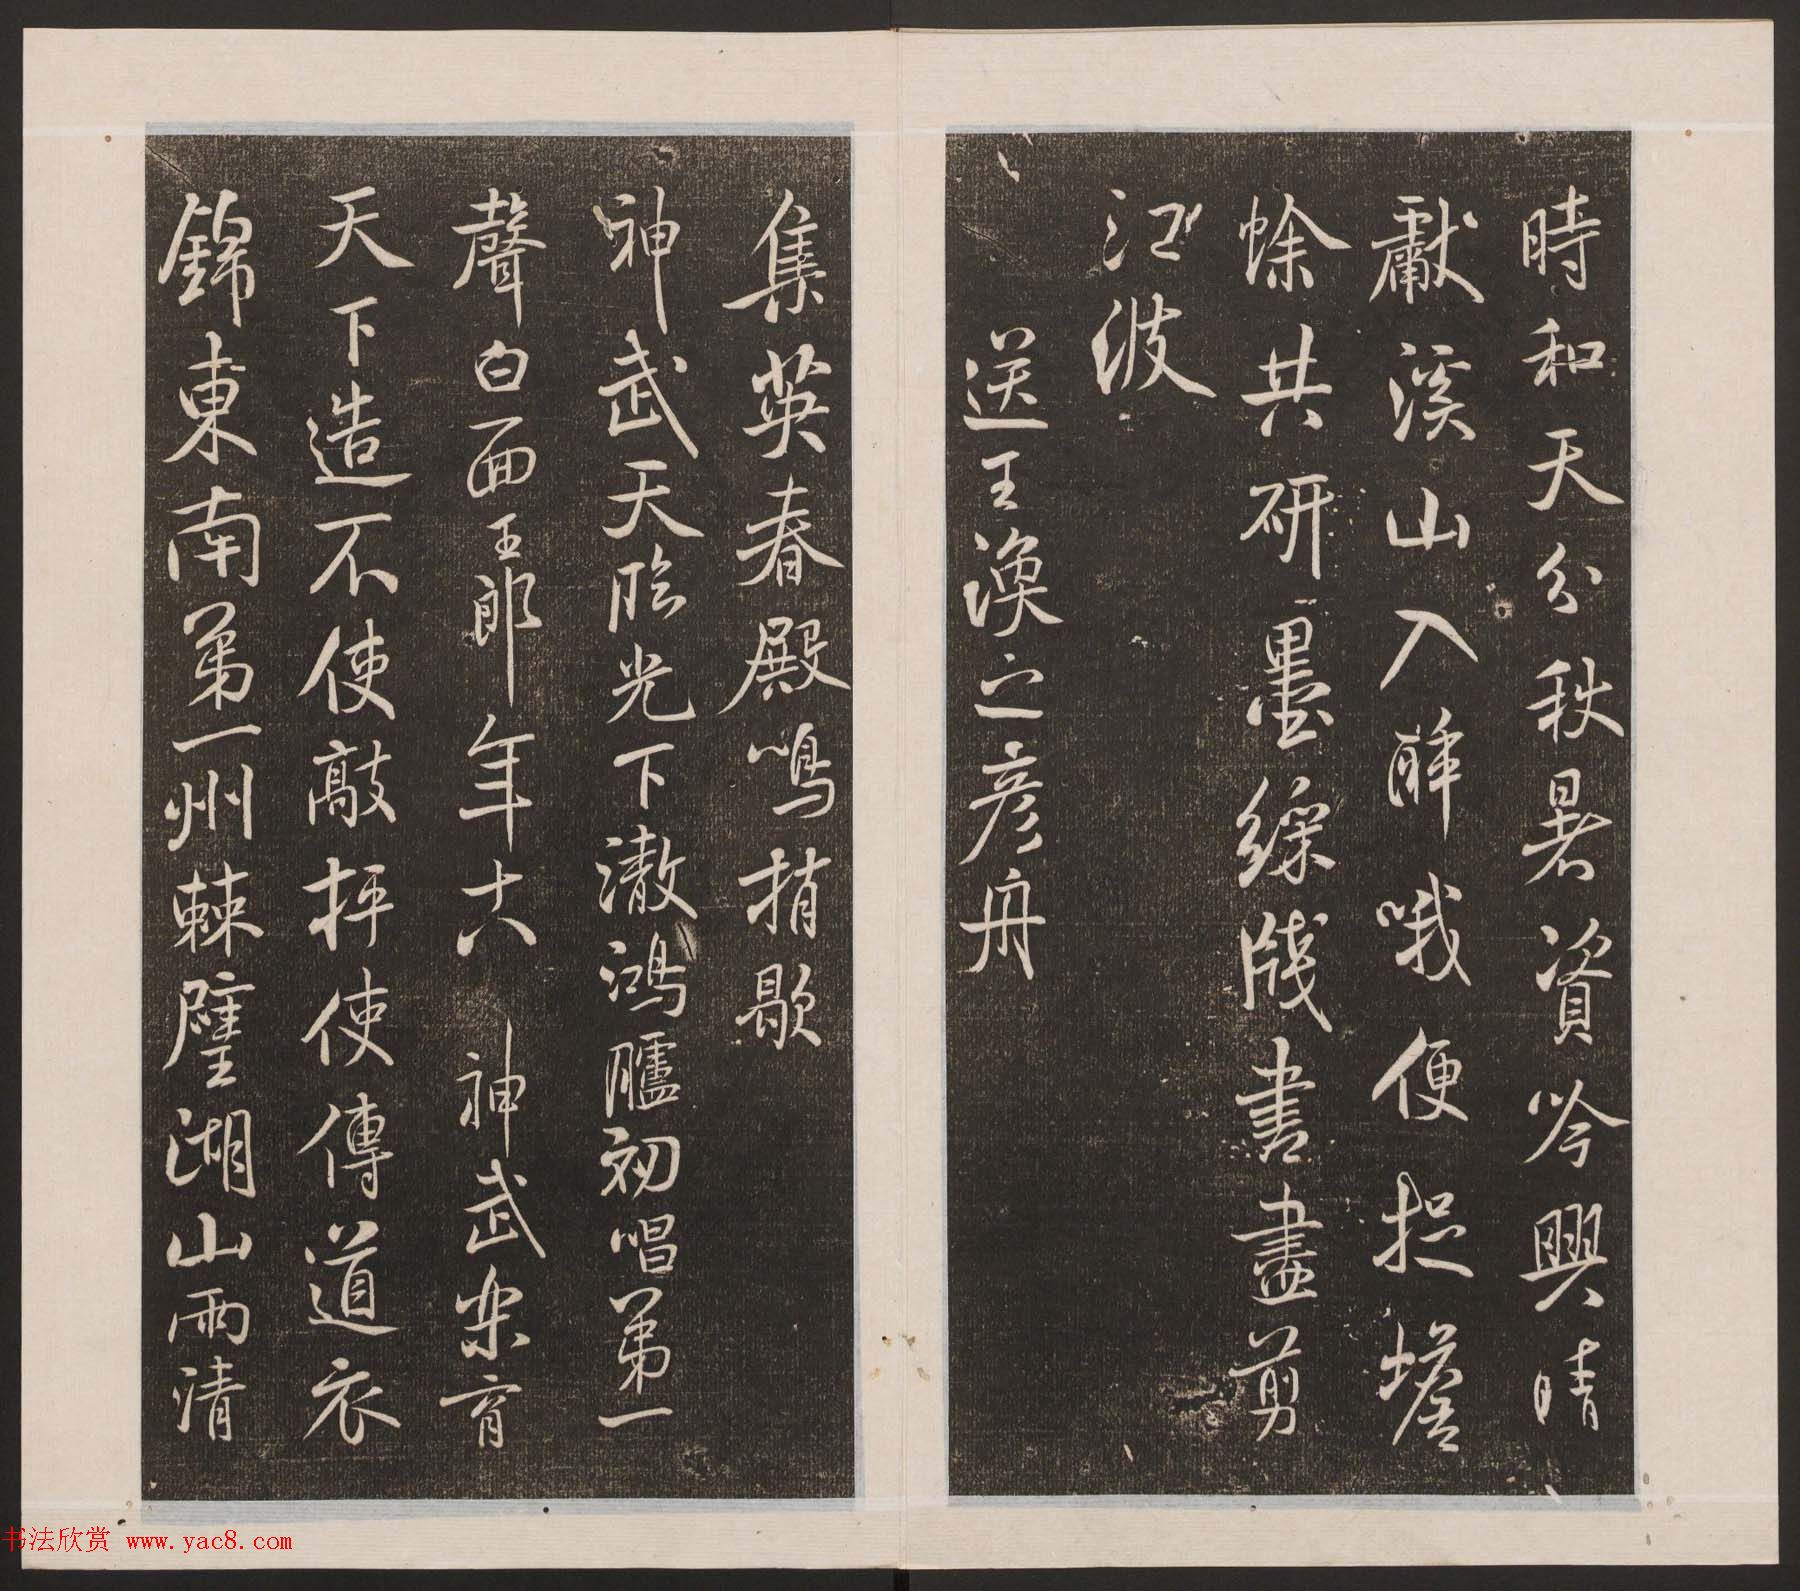 時和天分秋暑資吟興晴
獻溪山入醉哦便捉蟾
蜍共研墨綵牋書盡剪
江波
送王渙之彥舟
集英春殿鳴捎歇
神武天臨光下澈鴻臚初唱第一
聲白面王郎年十八 神武樂育
天下造不使敲抨使傳道衣
錦東南第一州棘璧湖山兩清
书法欣赏 www.yac8.com